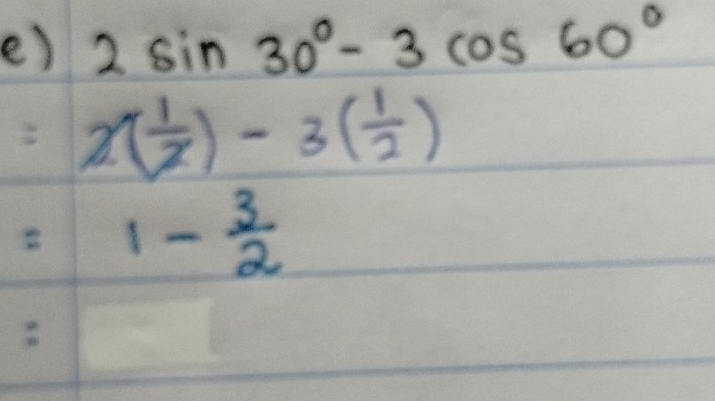 e) 2 sin 30° - 3 cos 60°
= 2(1/2) - 3(1/2)
= 1 - 3/2
=